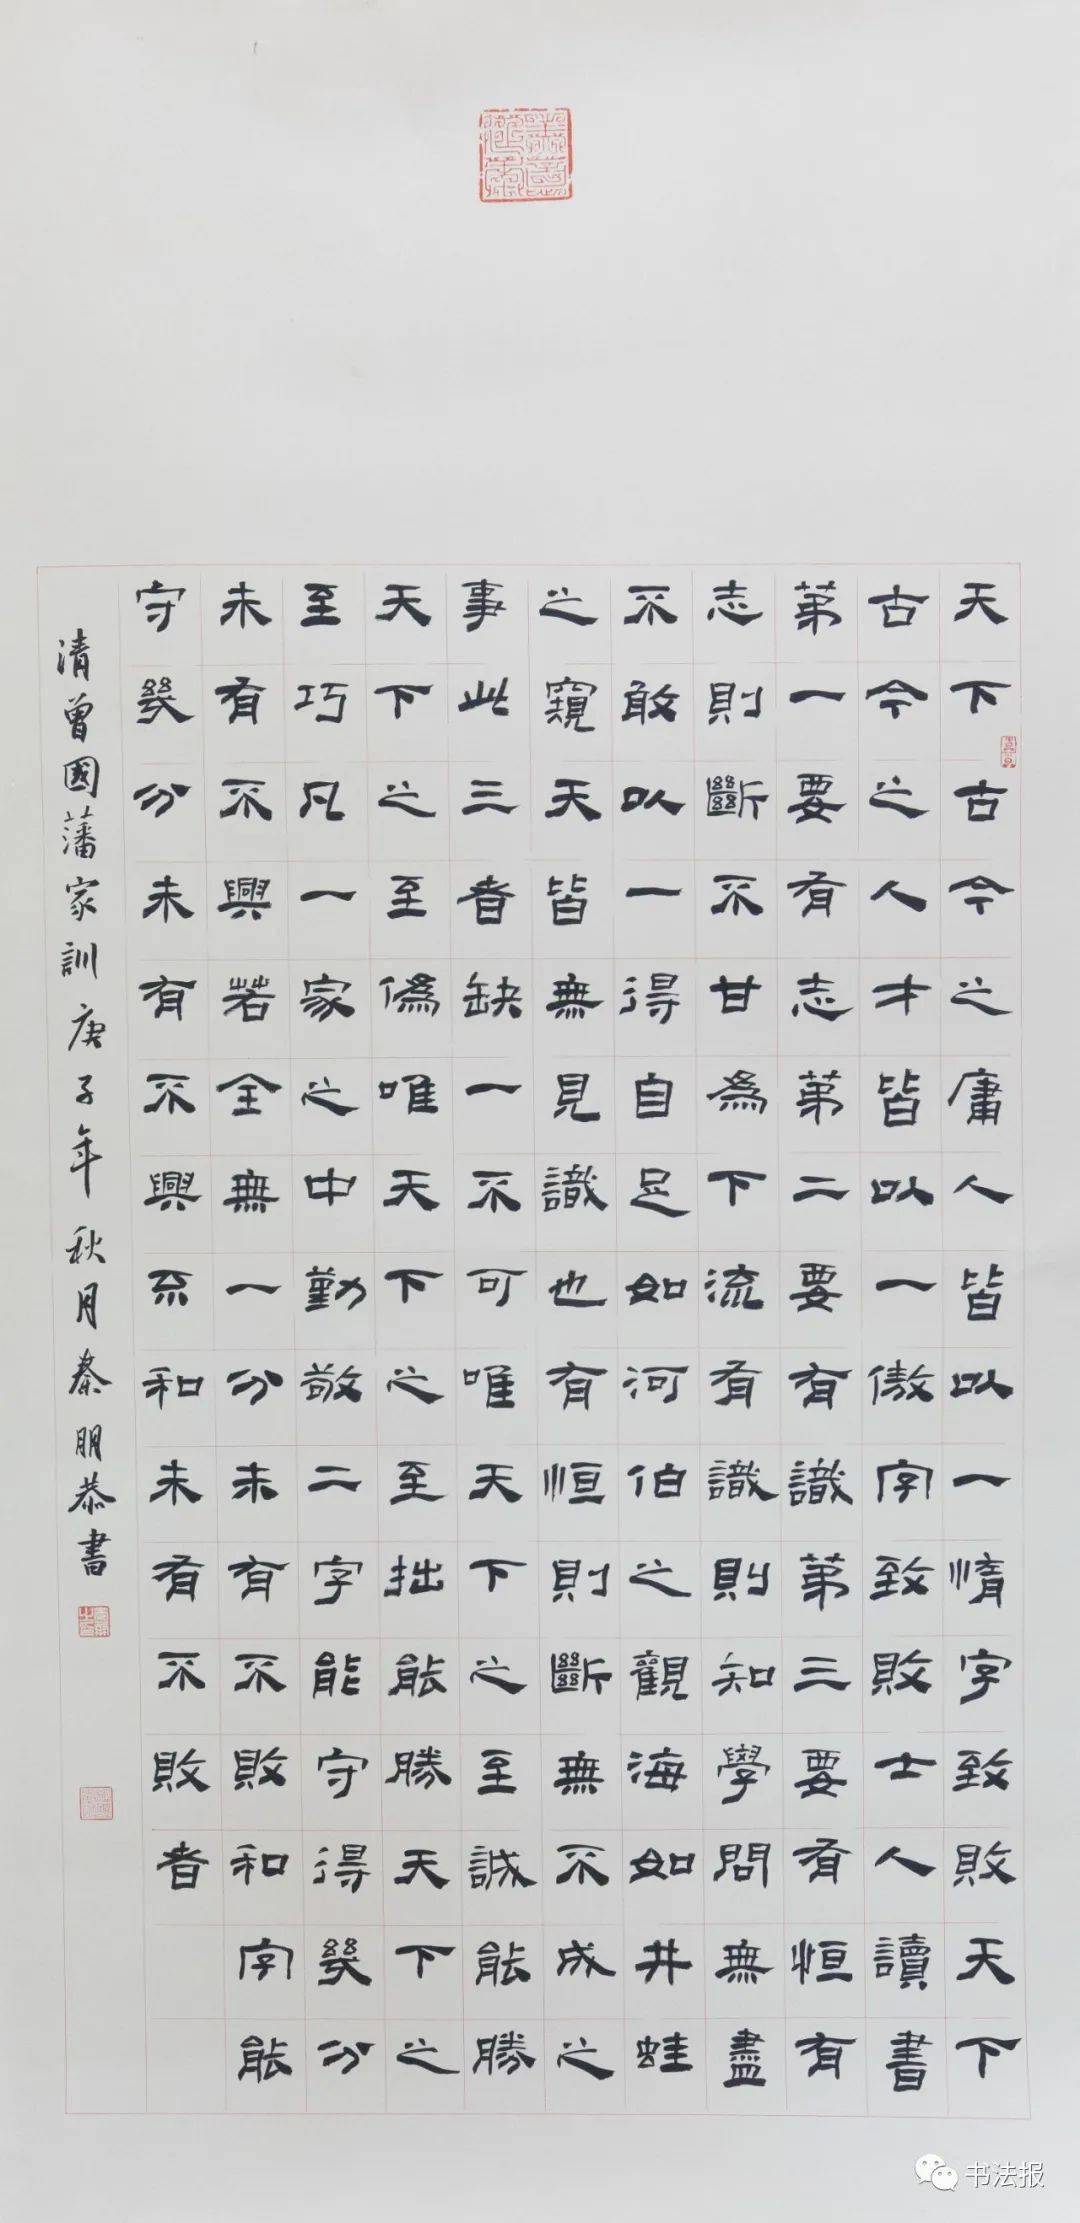 天下古今之庸人皆以一惰字致敗天下
古今之人才皆以一傲字致敗士人讀書
第一要有志第二要有識第三要有恒有
志則斷不甘爲下流有識則知學問無盡
不敢以一得自足如河伯之觀海如井蛙
之窺天皆無見識也有恒則斷無不成之
事此三者缺一不可唯天下之至誠能勝
天下之至僞唯天下之至拙能勝天下之
至巧凡一家之中勤敬二字能守得幾分
未有不興若全無一分未有不敗和字能
守幾分未有不興不和未有不敗者
清曾國藩家訓庚子年秋月秦朋恭書
书法报